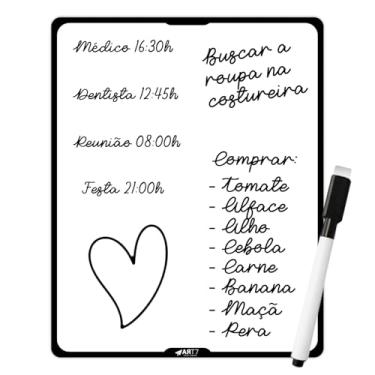 Médico 16:30h
Dentista 12:45h
Reunião 08:00h
Festa 21:00h
Buscar a
roupa na
costureira
Comprar:
- Tomate
- Alface
- Alho
- Cebola
- Carne
- Banana
- Maçã
- Pera
ART7